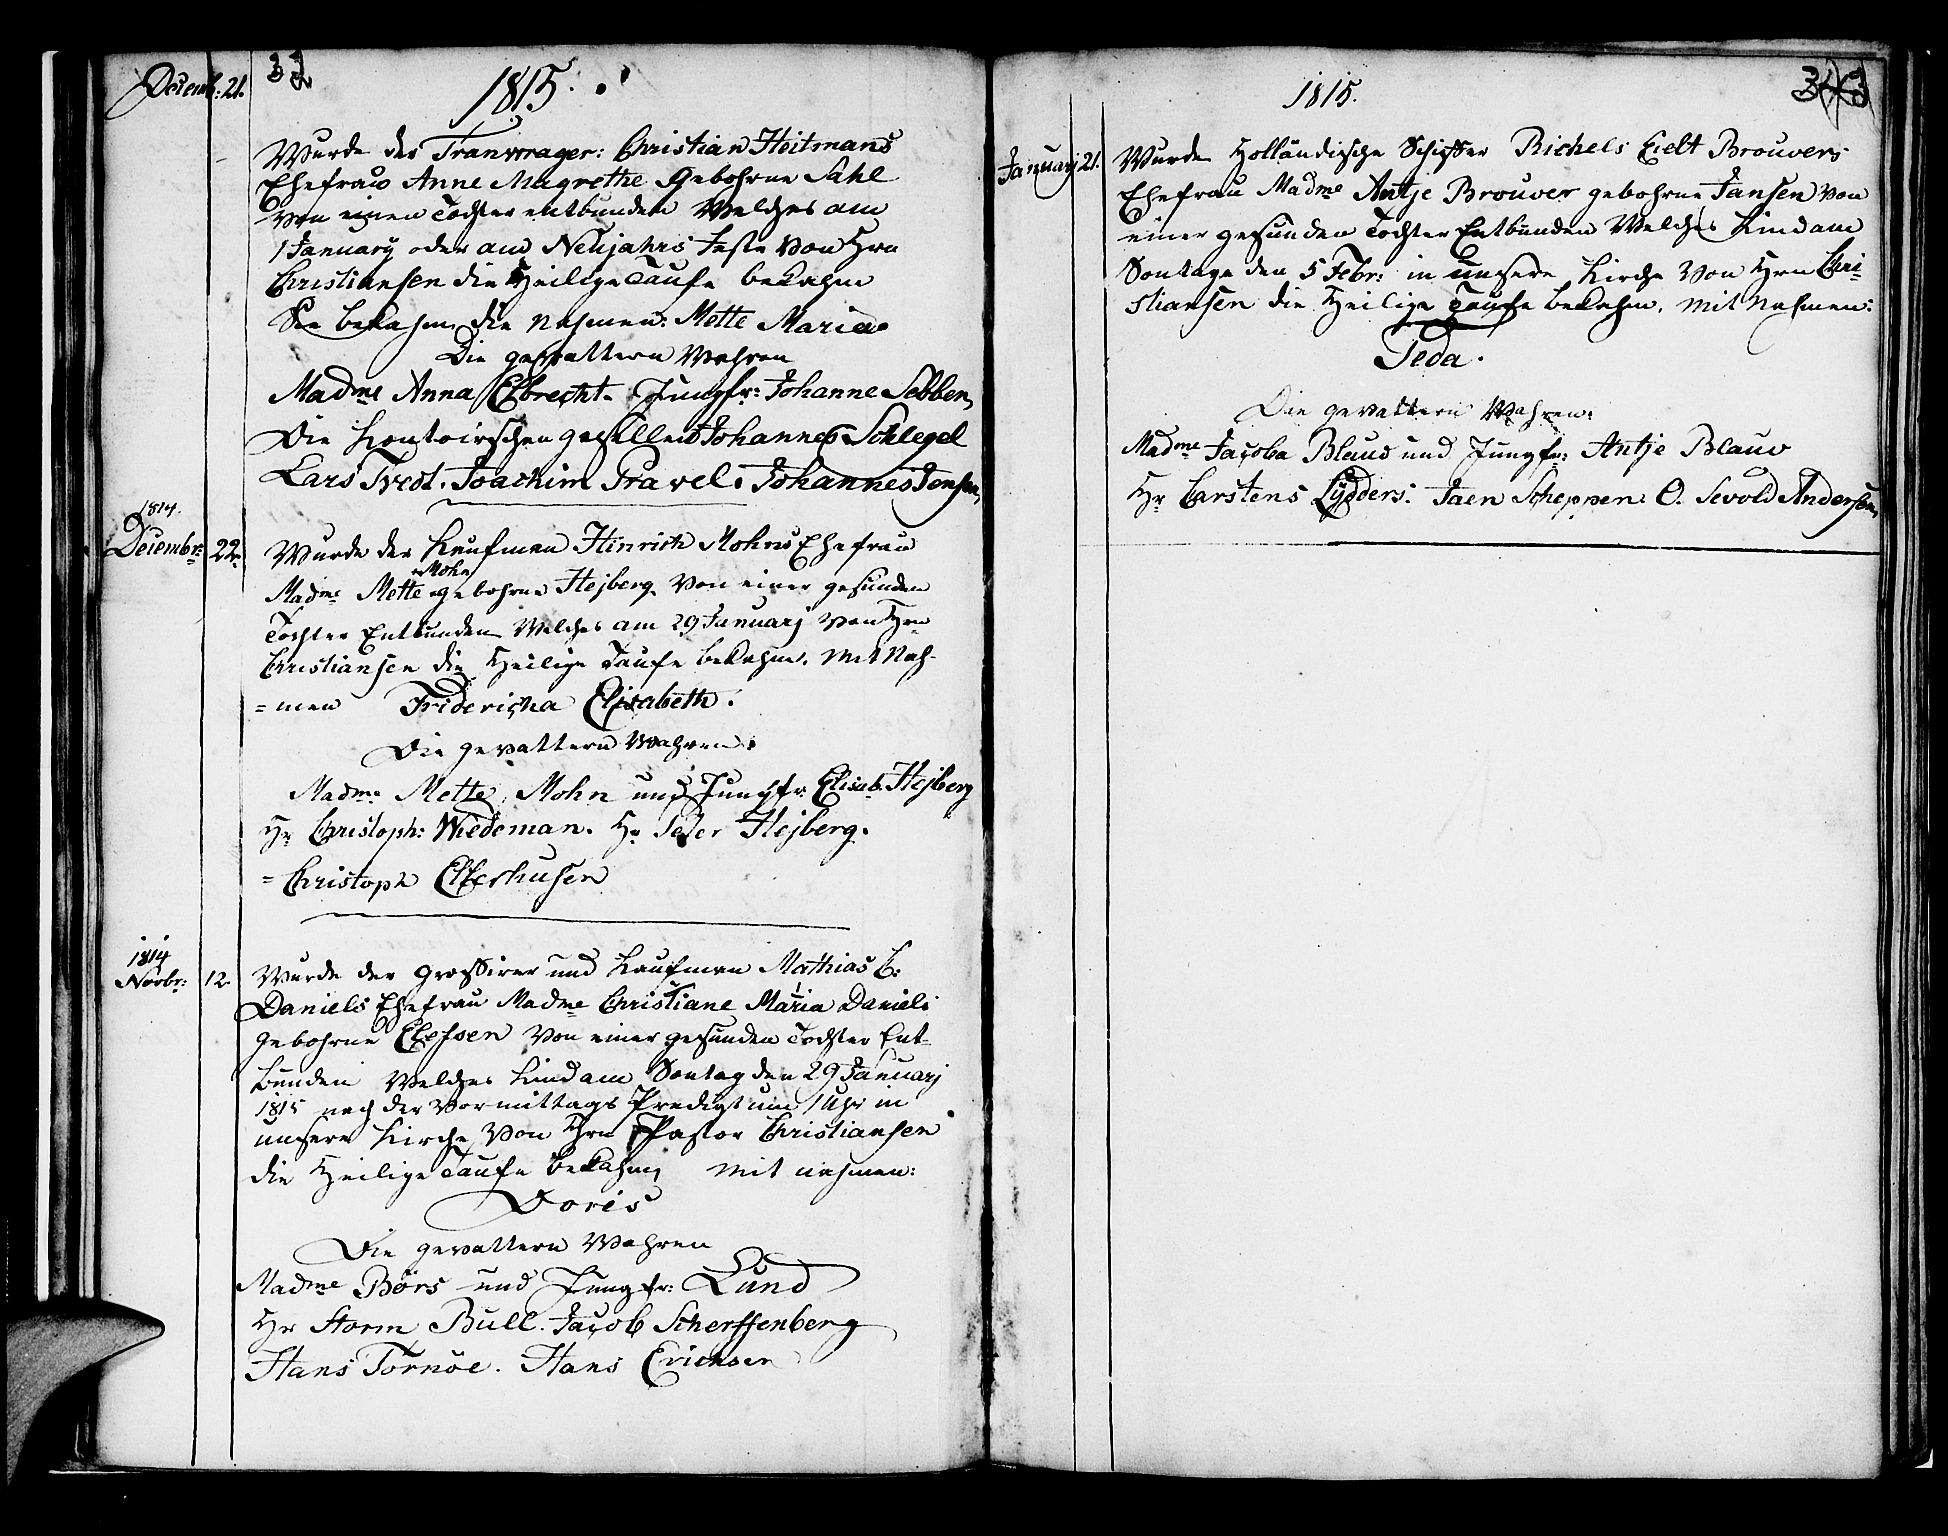 Decemb: 21.
32
1815.
Wurde des Tranwrager: Christian Heitmans
Ehefrau Anne Magrethe Gebohrne Sahl
von einen Tochter entbunden Welches am
1 January oder am Neujahrs Feste Von Hrn
Christiansen die Heilige Taufe bekahm
Sie bekahm die Nahmen: Mette Maria
Die gevattern Wahren
Madme Anna Elbrecht. Jungfr: Johanne Sebben,
Die Kontoirschen gesellen Johannes Schlegel
Lars Tvedt. Joachim Pravel. Johannes Jensen,
1814.
Decembr: 22.
Wurde der Kaufman Hinrich Mohns Ehefrau
Mohn
Madme Mette gebohrne Hejberg Von einer gesunden
Tochter Entbunden Welches am 29 Januarj Von Hrn
Christiansen die Heilige Taufe bekahm. Mit Nah-
=men Fridericha Elisabeth.
Die gevattern Wahren:
Madme Mette Mohn und Jungfr: Elisab. Hejberg
Hr Christoph: Wiedeman. Hr Peter Hejberg.
= Christoph Elferhusen
1814
Novbr: 12.
Wurde der Grossirer und Kaufman Mathias C:
Daniels Ehefrau Madme Christiane Maria Daniels
gebohrne Elefsen Von einer gesunden Tochter Ent-
bunden Welches Kind am Sontag den 29 Januarj
1815 nach der Vormittags Predigt um 1 Uhr in
unsere Kirche Von Hrn Pastor Christiansen
die Heilige Taufe bekahm, mit nahmen:
Doris
Die gevattern Wahren
Madme Börs und Jungfr: Lund
Hr Storm Bull. Jacob Scherffenberg
Hans Tornöe. Hans Erichsen
1815.
Januarj 21.
Wurde Holländische Schiffer Richels Eielt Brouvers
Ehefrau Madme Antje Brouver gebohrne Jansen Von
einer gesunden Tochter Entbunden Welches Kind am
Sontage den 5 Febr: in unsere Kirche Von Hrn Chri-
stiansen die Heilige Taufe bekahm. mit Nahmen:
Teda.
Die gevattern Wahren:
Madme Jacoba Blauv und Jungfr: Antje Blauv
Hr Carstens Lydders. Jaen Scheppen. O. Sevold Andersen,